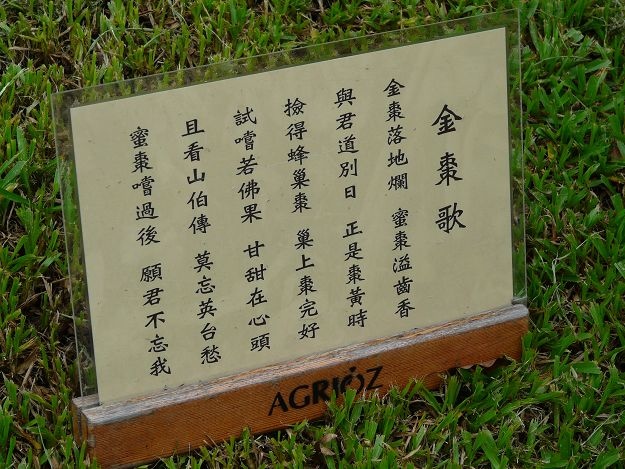 金棗歌
金棗落地爛 蜜棗溢齒香
與君道別日 正是棗黃時
撿得蜂巢棗 巢上棗完好
試嚐若佛果 甘甜在心頭
且看山伯傳 莫忘英台愁
蜜棗嚐過後 願君不忘我
AGRIOZ